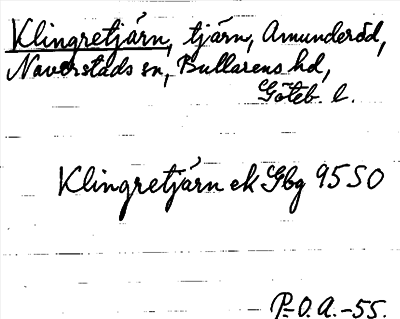 Klingretjärn, tjärn, Amunderöd,
Naverstads sn, Bullarens hd,
Göteb. l.
Klingretjärn ek Gbg 95 SO
P.-O. A. -55.